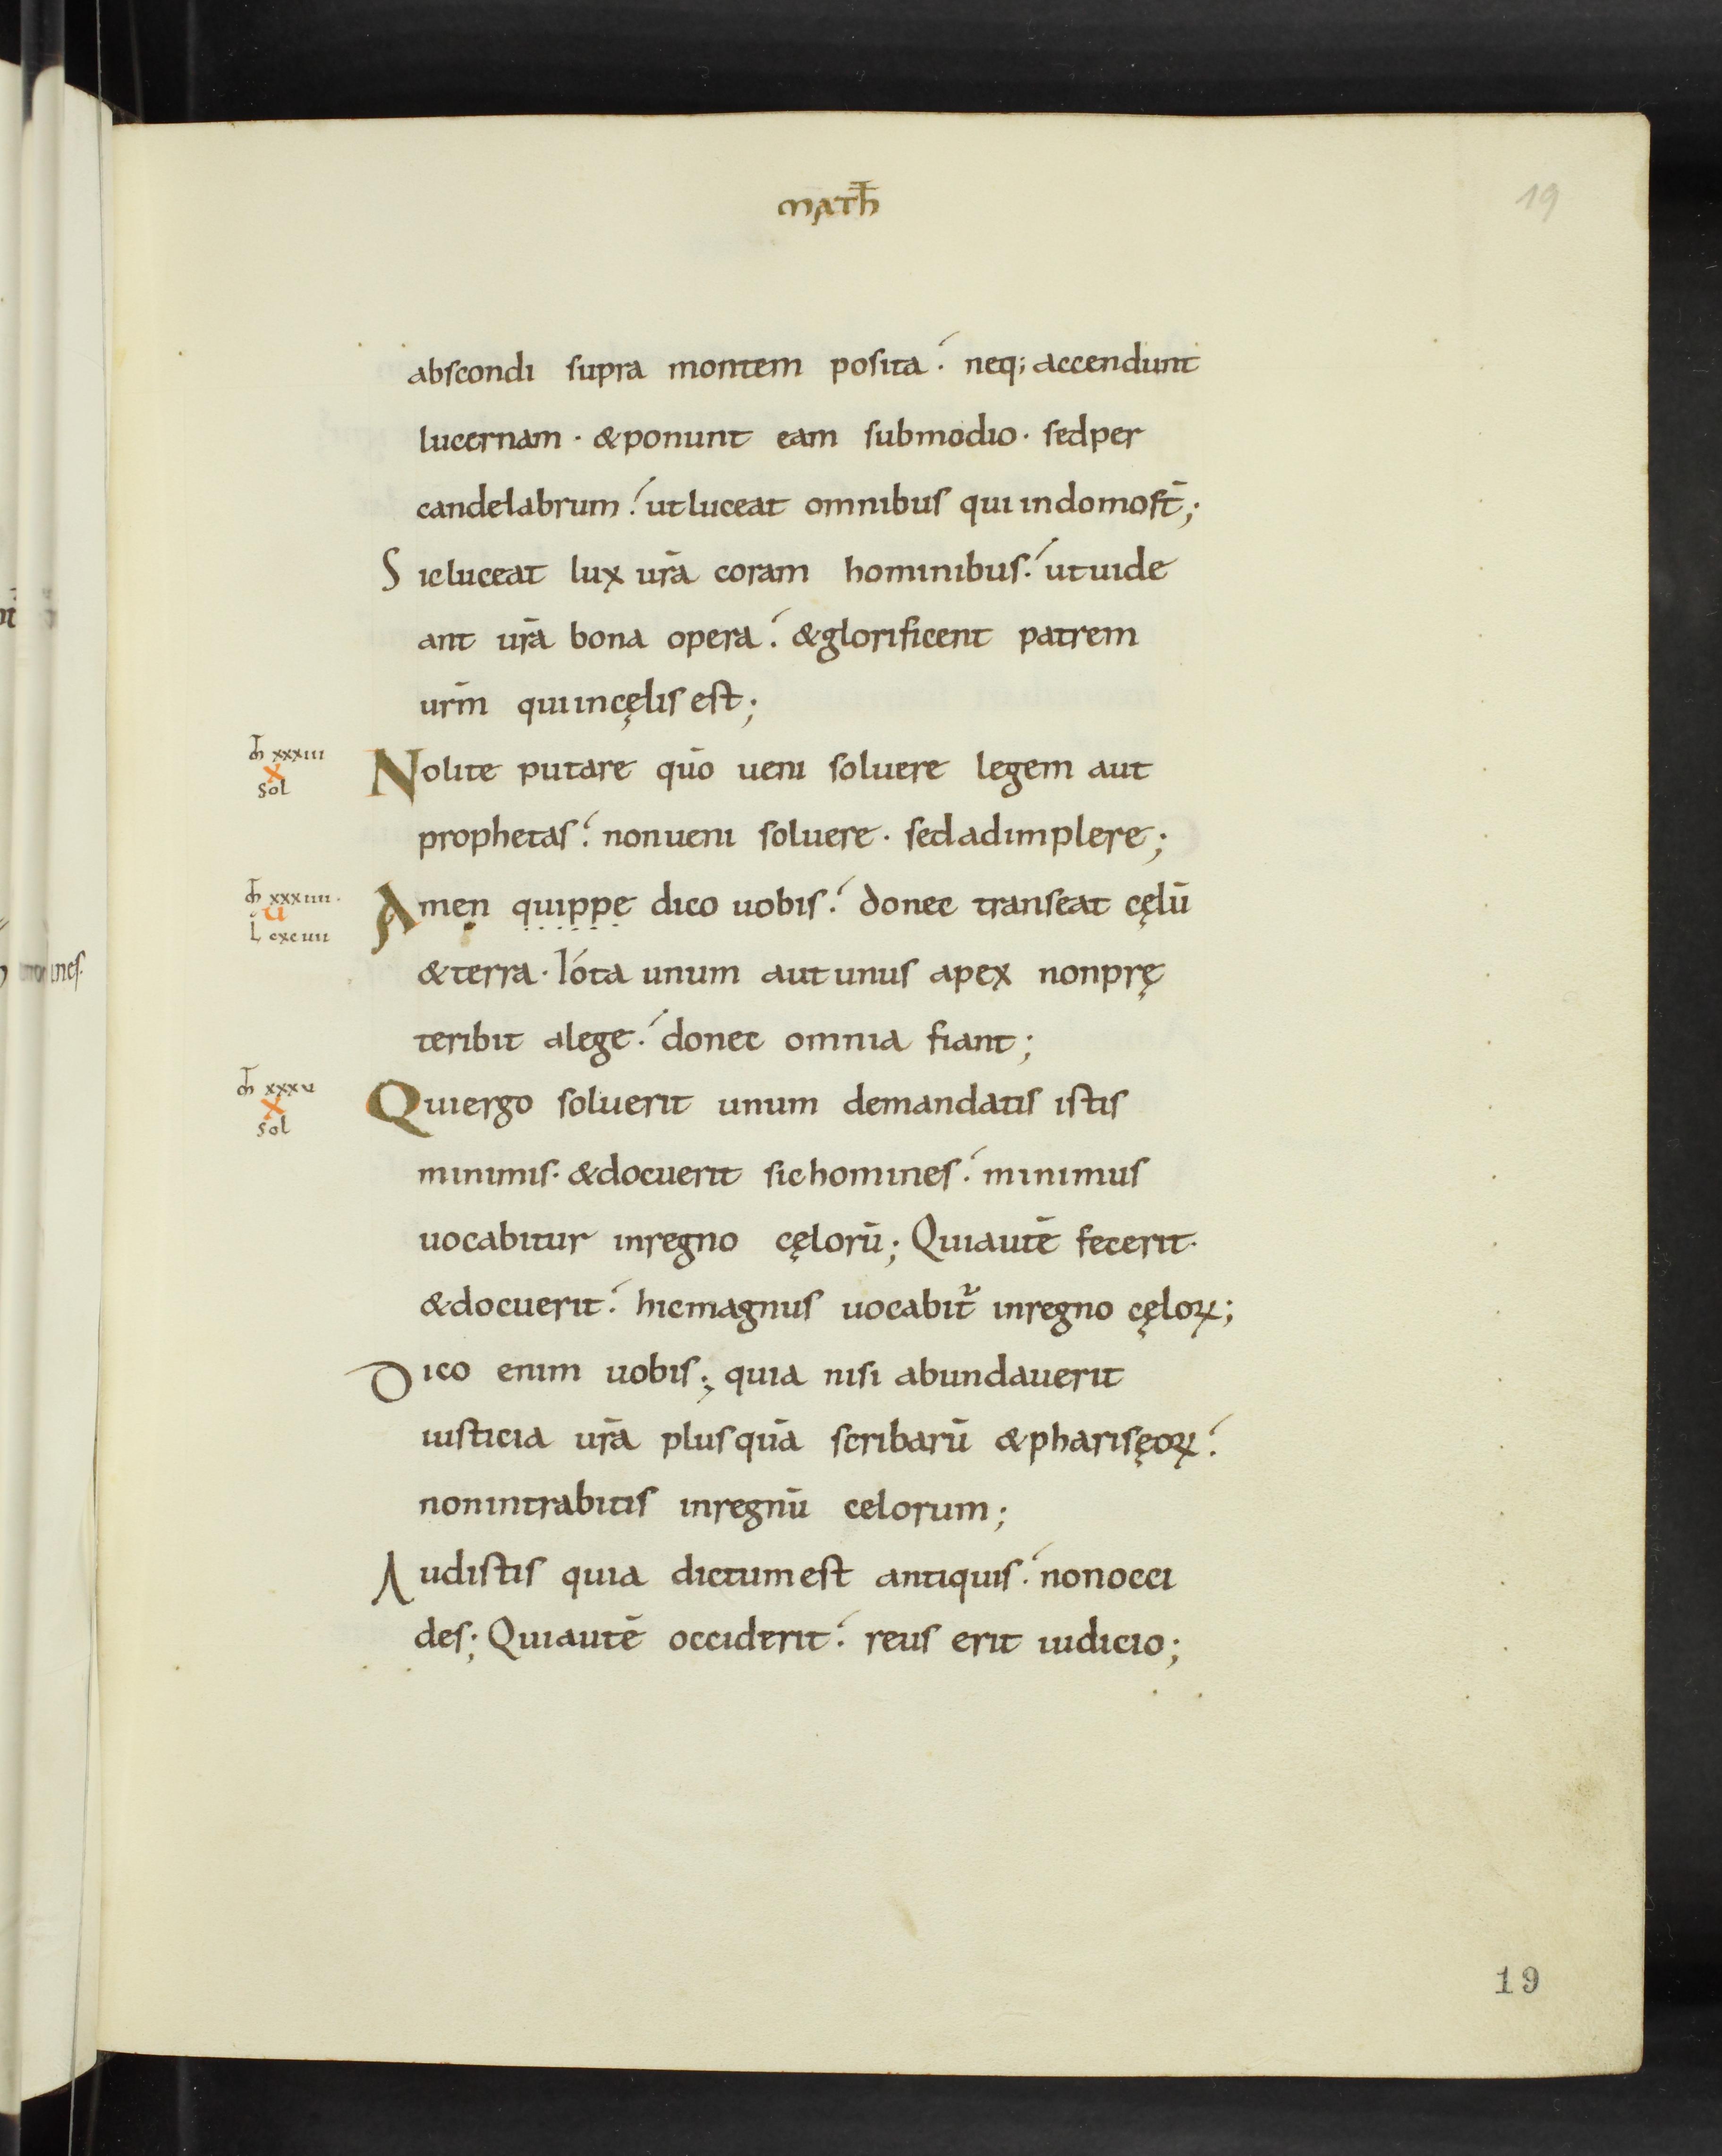 MATH̄
19
abscondi supra montem posita; neq; accendunt
lucernam · & ponunt eam sub modio · sed per
candelabrum; ut luceat omnibus qui in domo st̄;
Sic luceat lux ur̄a coram hominibus; ut uide
ant ur̄a bona opera; & glorificent patrem
ur̄m qui in cęlis est;
m̄ xxxiii
X
Sol
Nolite putare qūo ueni soluere legem aut
prophetas; non ueni soluere · sed adimplere;
m̄ xxxiiii·
ū
L cxciiii
Amen quippe dico uobis; donec transeat cęlū
& terra · Ióta unum aut unus apex non prę
teribit a lege; donec omnia fiant;
m̄ xxxv
X
Sol
Qui ergo soluerit unum de mandatis istis
minimis · & docuerit sic homines; minimus
uocabitur in regno cęlorū; Qui autē fecerit·
& docuerit; hic magnus uocabit᷑ in regno cęloꝝ;
Dico enim uobis; quia nisi abundauerit
iusticia ur̄a plus quā scribarū & pharisęoꝝ;
non intrabitis in regnū celorum;
Audistis quia dictum est antiquis; non occi
des; Qui autē occiderit; reus erit iudicio;
19